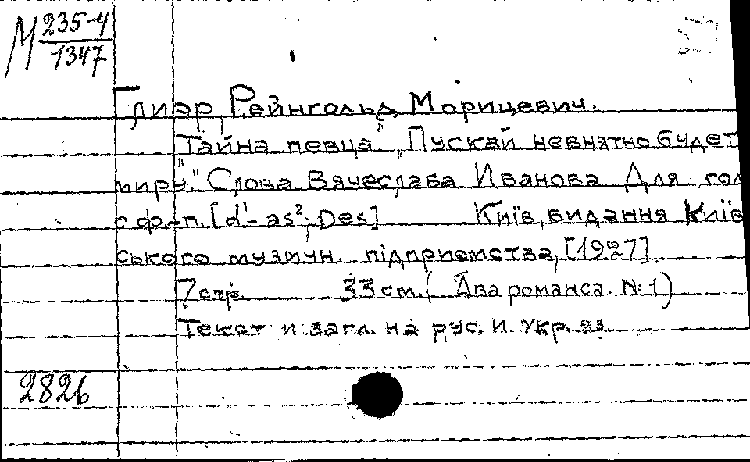 М 235-4
1347
Глиэр, Рейнгольд Морицевич.
"Тайна певца" "Пускай невнятно будет
миру" Слова Вячеслава Иванова Для гол
с ф.-п. [d¹-as²; Des] Київ, видання Київ
ського музичн. підприємства, [1927]
7 стр. 33 см. (Два романса. № 1)
Текст и загл. на рус. и укр. яз.
2826